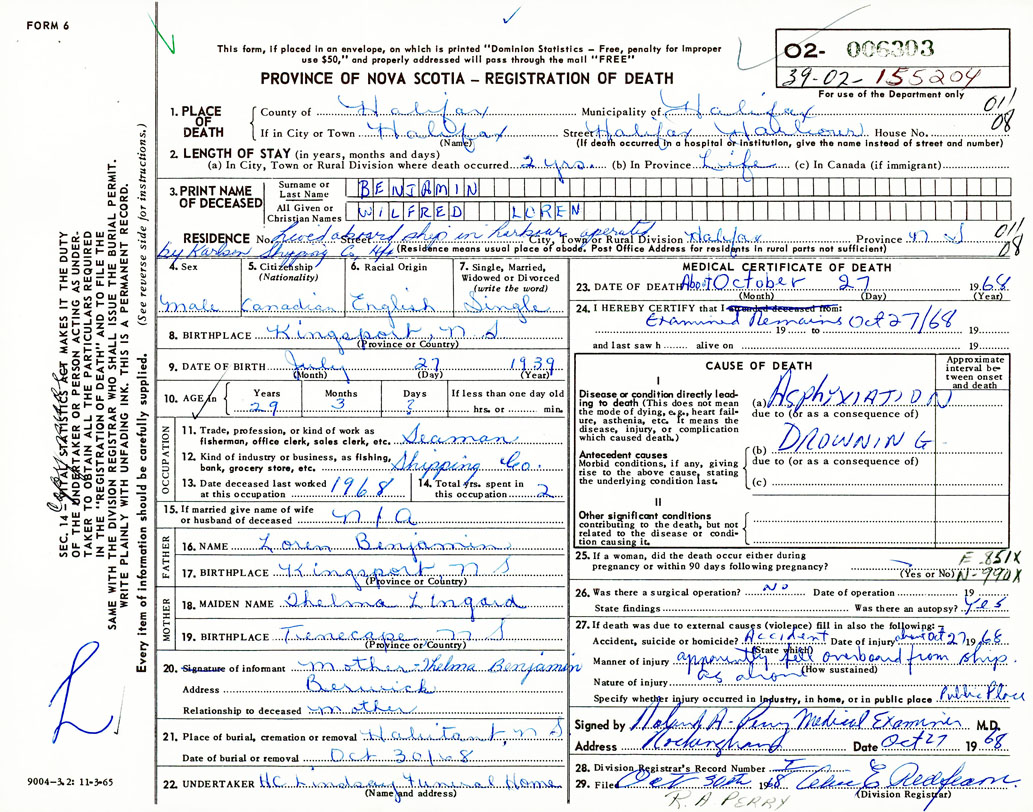 FORM 6
This form, if placed in an envelope, on which is printed "Dominion Statistics – Free, penalty for improper
use $50," and properly addressed will pass through the mail "FREE"
PROVINCE OF NOVA SCOTIA – REGISTRATION OF DEATH
02- 006303
39-02-155204
For use of the Department only
011
08
1. PLACE OF DEATH
County of Halifax Municipality of Halifax
If in City or Town Halifax Street Halifax Harbour House No.
(Name) (If death occurred in a hospital or institution, give the name instead of street and number)
2. LENGTH OF STAY (in years, months and days)
(a) In City, Town or Rural Division where death occurred 2 yrs. (b) In Province Life (c) In Canada (if immigrant)
3. PRINT NAME OF DECEASED
Surname or Last Name BENJAMIN
All Given or Christian Names WILFRED LOREN
RESIDENCE No. Lived aboard ship in harbour operated Street City, Town or Rural Division Halifax Province N S
by Karlsen Shipping Co. Hfx (Residence means usual place of abode. Post Office Address for residents in rural parts not sufficient)
011
08
4. Sex male
5. Citizenship (Nationality) Canadian
6. Racial Origin English
7. Single, Married, Widowed or Divorced (write the word) Single
8. BIRTHPLACE Kingsport, N S
(Province or Country)
9. DATE OF BIRTH July 27 1939
(Month) (Day) (Year)
10. AGE in Years 29 Months 3 Days ? If less than one day old hrs. or min.
OCCUPATION
11. Trade, profession, or kind of work as fisherman, office clerk, sales clerk, etc. Seaman
12. Kind of industry or business, as fishing, bank, grocery store, etc. Shipping Co.
13. Date deceased last worked at this occupation 1968
14. Total yrs. spent in this occupation 2
15. If married give name of wife or husband of deceased n/a
FATHER
16. NAME Loren Benjamin
17. BIRTHPLACE Kingsport N S
(Province or Country)
MOTHER
18. MAIDEN NAME Thelma Lingard
19. BIRTHPLACE Tenecape N S
(Province or Country)
20. Signature of informant mother - Thelma Benjamin
Address Berwick
Relationship to deceased mother
21. Place of burial, cremation or removal Habitant, N S
Date of burial or removal Oct 30/68
22. UNDERTAKER HC Lindsay Funeral Home
(Name and address)
MEDICAL CERTIFICATE OF DEATH
23. DATE OF DEATH About October 27 1968
(Month) (Day) (Year)
24. I HEREBY CERTIFY that I attended deceased from:
Examined Remains Oct 27/68
19 to 19
and last saw h alive on 19
CAUSE OF DEATH
Approximate interval between onset and death
I
Disease or condition directly leading to death (This does not mean the mode of dying, e.g., heart failure, asthenia, etc. It means the disease, injury, or complication which caused death.)
(a) ASPHYXIATION
due to (or as a consequence of)
Antecedent causes
Morbid conditions, if any, giving rise to the above cause, stating the underlying condition last.
(b) DROWNING
due to (or as a consequence of)
(c)
II
Other significant conditions contributing to the death, but not related to the disease or condition causing it.
25. If a woman, did the death occur either during pregnancy or within 90 days following pregnancy?
(Yes or No)
E-851X
N-990X
26. Was there a surgical operation? No Date of operation 19
State findings Was there an autopsy? Yes
27. If death was due to external causes (violence) fill in also the following:
Accident, suicide or homicide? Accident Date of injury about Oct 27 1968
(State which)
Manner of injury apparently fell overboard from ship.
(How sustained)
Nature of injury as above
Specify whether injury occurred in industry, in home, or in public place Public Place
Signed by Roland A. Perry Medical Examiner M.D.
Address Rockingham Date Oct 27 1968
28. Division Registrar's Record Number
29. Filed Oct 30th 1968
(Division Registrar)
R A PERRY
SEC. 14 – VITAL STATISTICS ACT MAKES IT THE DUTY
OF THE UNDERTAKER OR PERSON ACTING AS UNDER-
TAKER TO OBTAIN ALL THE PARTICULARS REQUIRED
IN THE "REGISTRATION OF DEATH" AND TO FILE THE
SAME WITH THE DIVISION REGISTRAR WHO SHALL ISSUE THE BURIAL PERMIT.
WRITE PLAINLY WITH UNFADING INK. THIS IS A PERMANENT RECORD.
Every item of information should be carefully supplied. (See reverse side for instructions.)
9004-3.2: 11-3-65